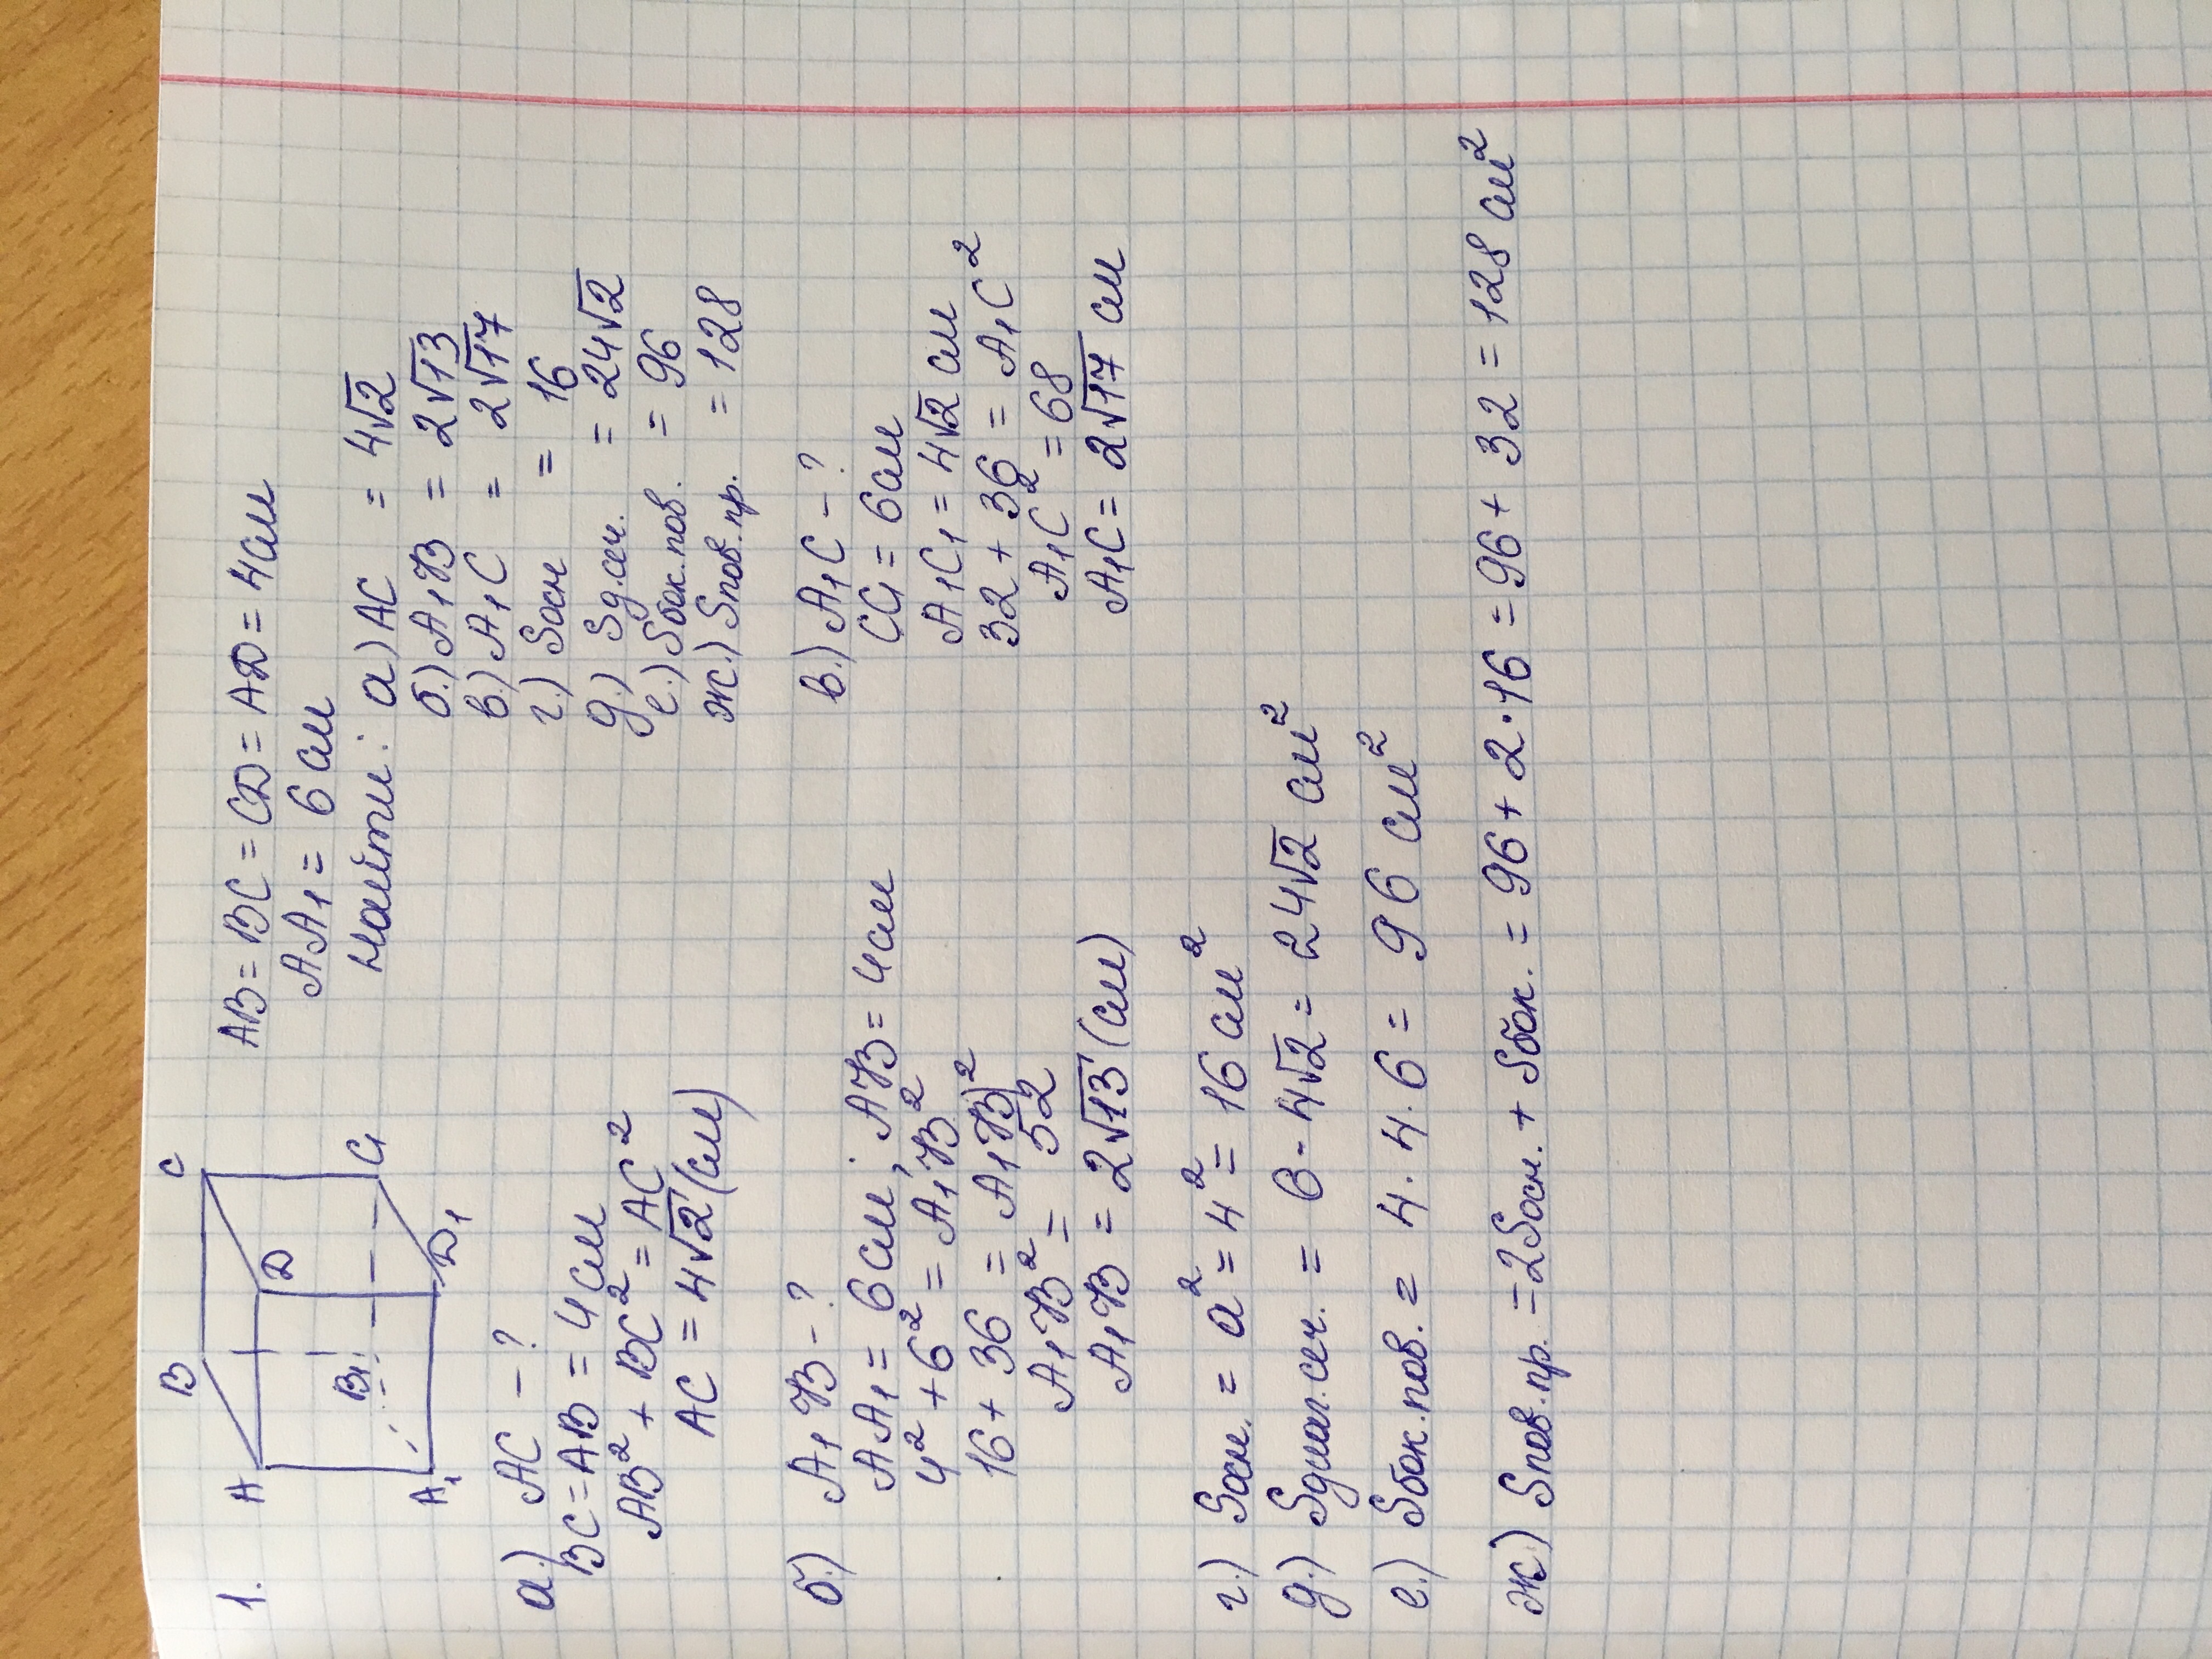 1.
B C
A D
B₁ C₁
A₁ D₁
AB = BC = CD = AD = 4см
AA₁ = 6 см
Найти: а) AC = 4√2
б.) A₁B = 2√13
в.) A₁C = 2√17
г.) Sосн = 16
д.) Sд.сеч. = 24√2
е.) Sбок.пов. = 96
ж.) Sпов.пр. = 128
а.) AC - ?
BC = AB = 4 см
AB² + BC² = AC²
AC = 4√2 (см)
б.) A₁B - ?
AA₁ = 6 см; AB = 4см
4² + 6² = A₁B²
16 + 36 = A₁B²
A₁B² = 52
A₁B = 2√13 (см)
в.) A₁C - ?
CC₁ = 6см
A₁C₁ = 4√2 см
32 + 36 = A₁C²
A₁C² = 68
A₁C = 2√17 см
г.) Sосн. = a² = 4² = 16 см²
д.) Sдиаг.сеч. = 6 · 4√2 = 24√2 см²
е.) Sбок.пов. = 4 · 4 · 6 = 96 см²
ж.) Sпов.пр. = 2Sосн. + Sбок. = 96 + 2 · 16 = 96 + 32 = 128 см²